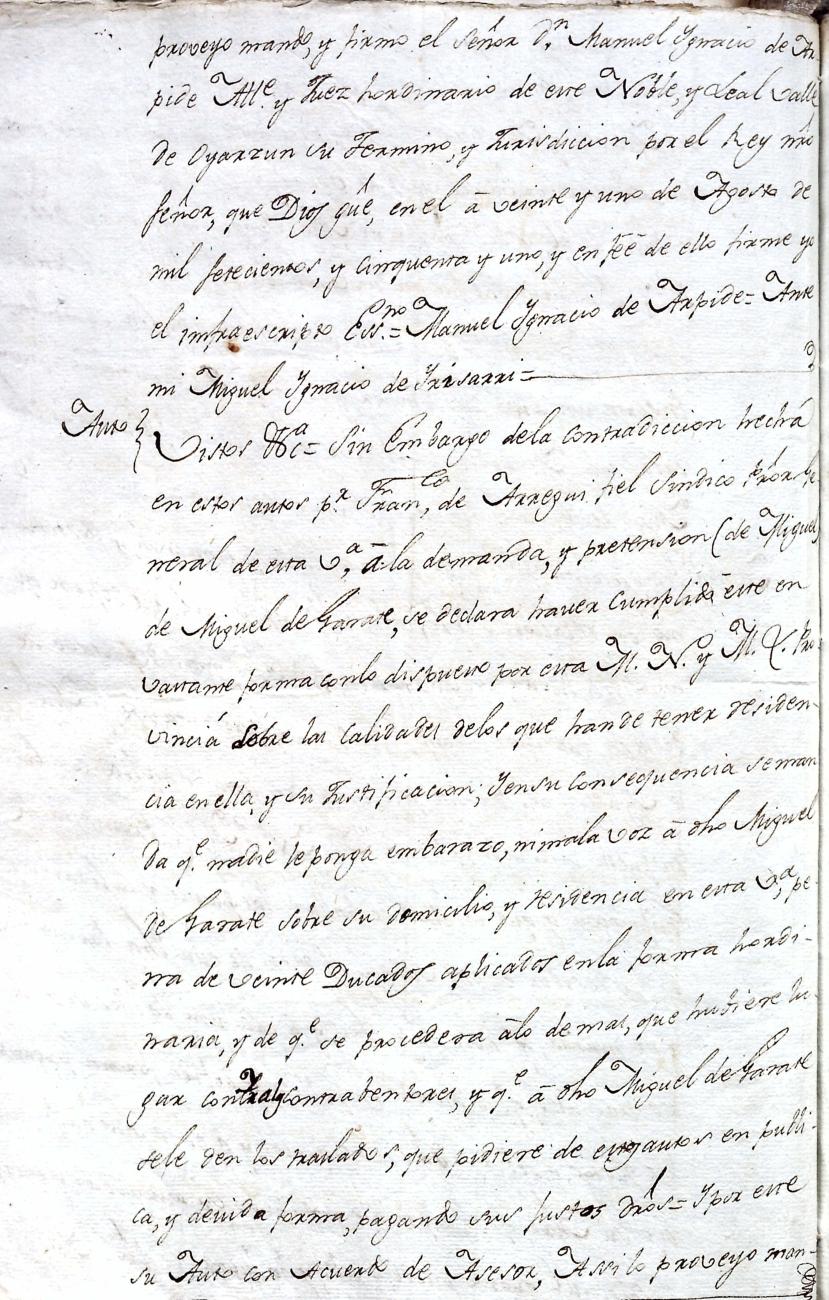 proveyo mando, y firmo el Señor Dn. Manuel Ygnacio de Ar
pide Alle. y Juez hordinario de este Noble, y Leal Valle
de Oyarzun su Termino, y Jurisdiccion por el Rey nro
señor, que Dios gûe, en el â veinte y uno de Agosto de
mil setecientos, y cinquenta y uno, y en feé de ello firme yo
el infraescripto Essno.= Manuel Ygnacio de Arpide= Ante
mi Miguel Ygnacio de Yrisarri=
Auto } Vistos &ca= Sin Embargo dela contradiccion hecha
en estos autos pr. Franco, de Arregui fiel sindico Prôr Ge
neral de esta Va, â la demanda, y pretension (de Miguel)
de Miguel de Garate, se declara haver Cumplido êste en
vastante forma conlo dispuesto por esta M. N. y M. L. Pro
vincia sobre las Calidades delos que hande tener residen-
cia en ella, y su Justificacion; Y ensu consequencia se man
da qe. nadie le ponga embarazo, ni mala voz â dho Miguel
de Garate sobre su domicilio, y residencia en esta Va, pe-
na de veinte Ducados aplicados enla forma hordi-
naria, y de qe. se procedera âlo demas, que hubiere lu-
gar contralos contrabentores, y qe. â dho Miguel de Garate
sele den los traslados, que pidiere de estos autos en publi-
ca, y devida forma, pagando sus justos drôs= Y por este
su Auto con Acuerdo de Asesor, Assi lo proveyo man-